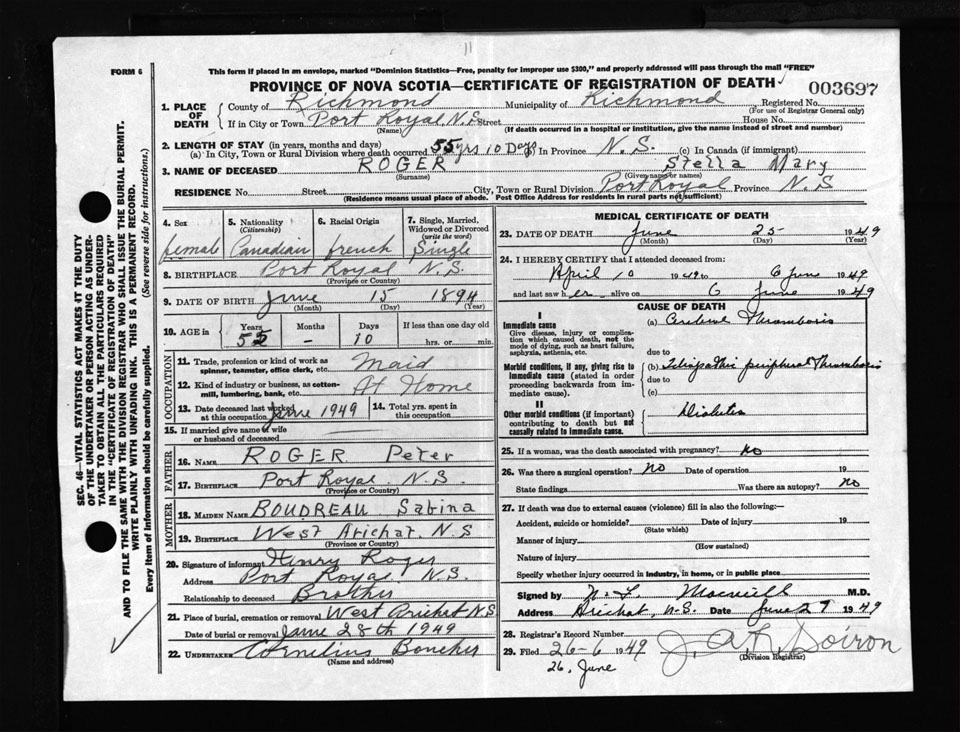 11
FORM 6
This form if placed in an envelope, marked "Dominion Statistics—Free, penalty for improper use $300," and properly addressed will pass through the mail "FREE"
PROVINCE OF NOVA SCOTIA—CERTIFICATE OF REGISTRATION OF DEATH
003697
1. PLACE OF DEATH County of Richmond Municipality of Richmond Registered No.
(For use of Registrar General only)
If in City or Town Port Royal, N.S. Street House No.
(Name) (If death occurred in a hospital or institution, give the name instead of street and number)
2. LENGTH OF STAY (in years, months and days)
(a) In City, Town or Rural Division where death occurred 55 yrs 10 Days (b) In Province N.S. (c) In Canada (if immigrant)
3. NAME OF DECEASED ROGER Stella Mary
(Surname) (Given names or names)
RESIDENCE No. Street City, Town or Rural Division Port Royal Province N.S
(Residence means usual place of abode. Post Office Address for residents in rural parts not sufficient)
4. Sex 5. Nationality (Citizenship) 6. Racial Origin 7. Single, Married, Widowed or Divorced (write the word)
female Canadian french Single
8. BIRTHPLACE Port Royal N.S.
(Province or Country)
9. DATE OF BIRTH June 15 1894
(Month) (Day) (Year)
10. AGE in Years Months Days If less than one day old
55 - 10 hrs. or min.
OCCUPATION
11. Trade, profession or kind of work as spinner, teamster, office clerk, etc. Maid
12. Kind of industry or business, as cotton-mill, lumbering, bank, etc. At Home
13. Date deceased last worked at this occupation June 1949 14. Total yrs. spent in this occupation
15. If married give name of wife or husband of deceased
FATHER
16. NAME ROGER Peter
17. BIRTHPLACE Port Royal N.S.
(Province or Country)
MOTHER
18. MAIDEN NAME BOUDREAU Sabina
19. BIRTHPLACE West Arichat, N.S
(Province or Country)
20. Signature of informant Henry Roger
Address Port Royal N.S.
Relationship to deceased Brother
21. Place of burial, cremation or removal West Arichat N.S
Date of burial or removal June 28th 1949
22. UNDERTAKER Cornelius Boucher
(Name and address)
MEDICAL CERTIFICATE OF DEATH
23. DATE OF DEATH June 25 1949
(Month) (Day) (Year)
24. I HEREBY CERTIFY that I attended deceased from:
April 10 1949 to 6 June 1949
and last saw her alive on 6 June 1949
CAUSE OF DEATH
I
Immediate cause
Give disease, injury or complication which caused death, not the mode of dying, such as heart failure, asphyxia, asthenia, etc.
(a) Cerebral Thrombosis
due to
Morbid conditions, if any, giving rise to immediate cause (stated in order proceeding backwards from immediate cause).
(b) Idiopathic peripheral Thrombosis
due to
(c)
II
Other morbid conditions (if important) contributing to death but not causally related to immediate cause.
Diabetes
25. If a woman, was the death associated with pregnancy? no
26. Was there a surgical operation? no Date of operation 19
State findings Was there an autopsy? no
27. If death was due to external causes (violence) fill in also the following:—
Accident, suicide or homicide? Date of injury 19
(State which)
Manner of injury
(How sustained)
Nature of injury
Specify whether injury occurred in industry, in home, or in public place
Signed by Macneill M.D.
Address Arichat, N.S. Date June 27 1949
28. Registrar's Record Number
29. Filed 26-6 1949 J. A. Soiron
(Division Registrar)
26, June
SEC. 46—VITAL STATISTICS ACT MAKES IT THE DUTY
OF THE UNDERTAKER OR PERSON ACTING AS UNDER-
TAKER TO OBTAIN ALL THE PARTICULARS REQUIRED
IN THE "CERTIFICATE OF REGISTRATION OF DEATH"
AND TO FILE THE SAME WITH THE DIVISION REGISTRAR WHO SHALL ISSUE THE BURIAL PERMIT.
WRITE PLAINLY WITH UNFADING INK. THIS IS A PERMANENT RECORD.
Every item of information should be carefully supplied. (See reverse side for instructions.)